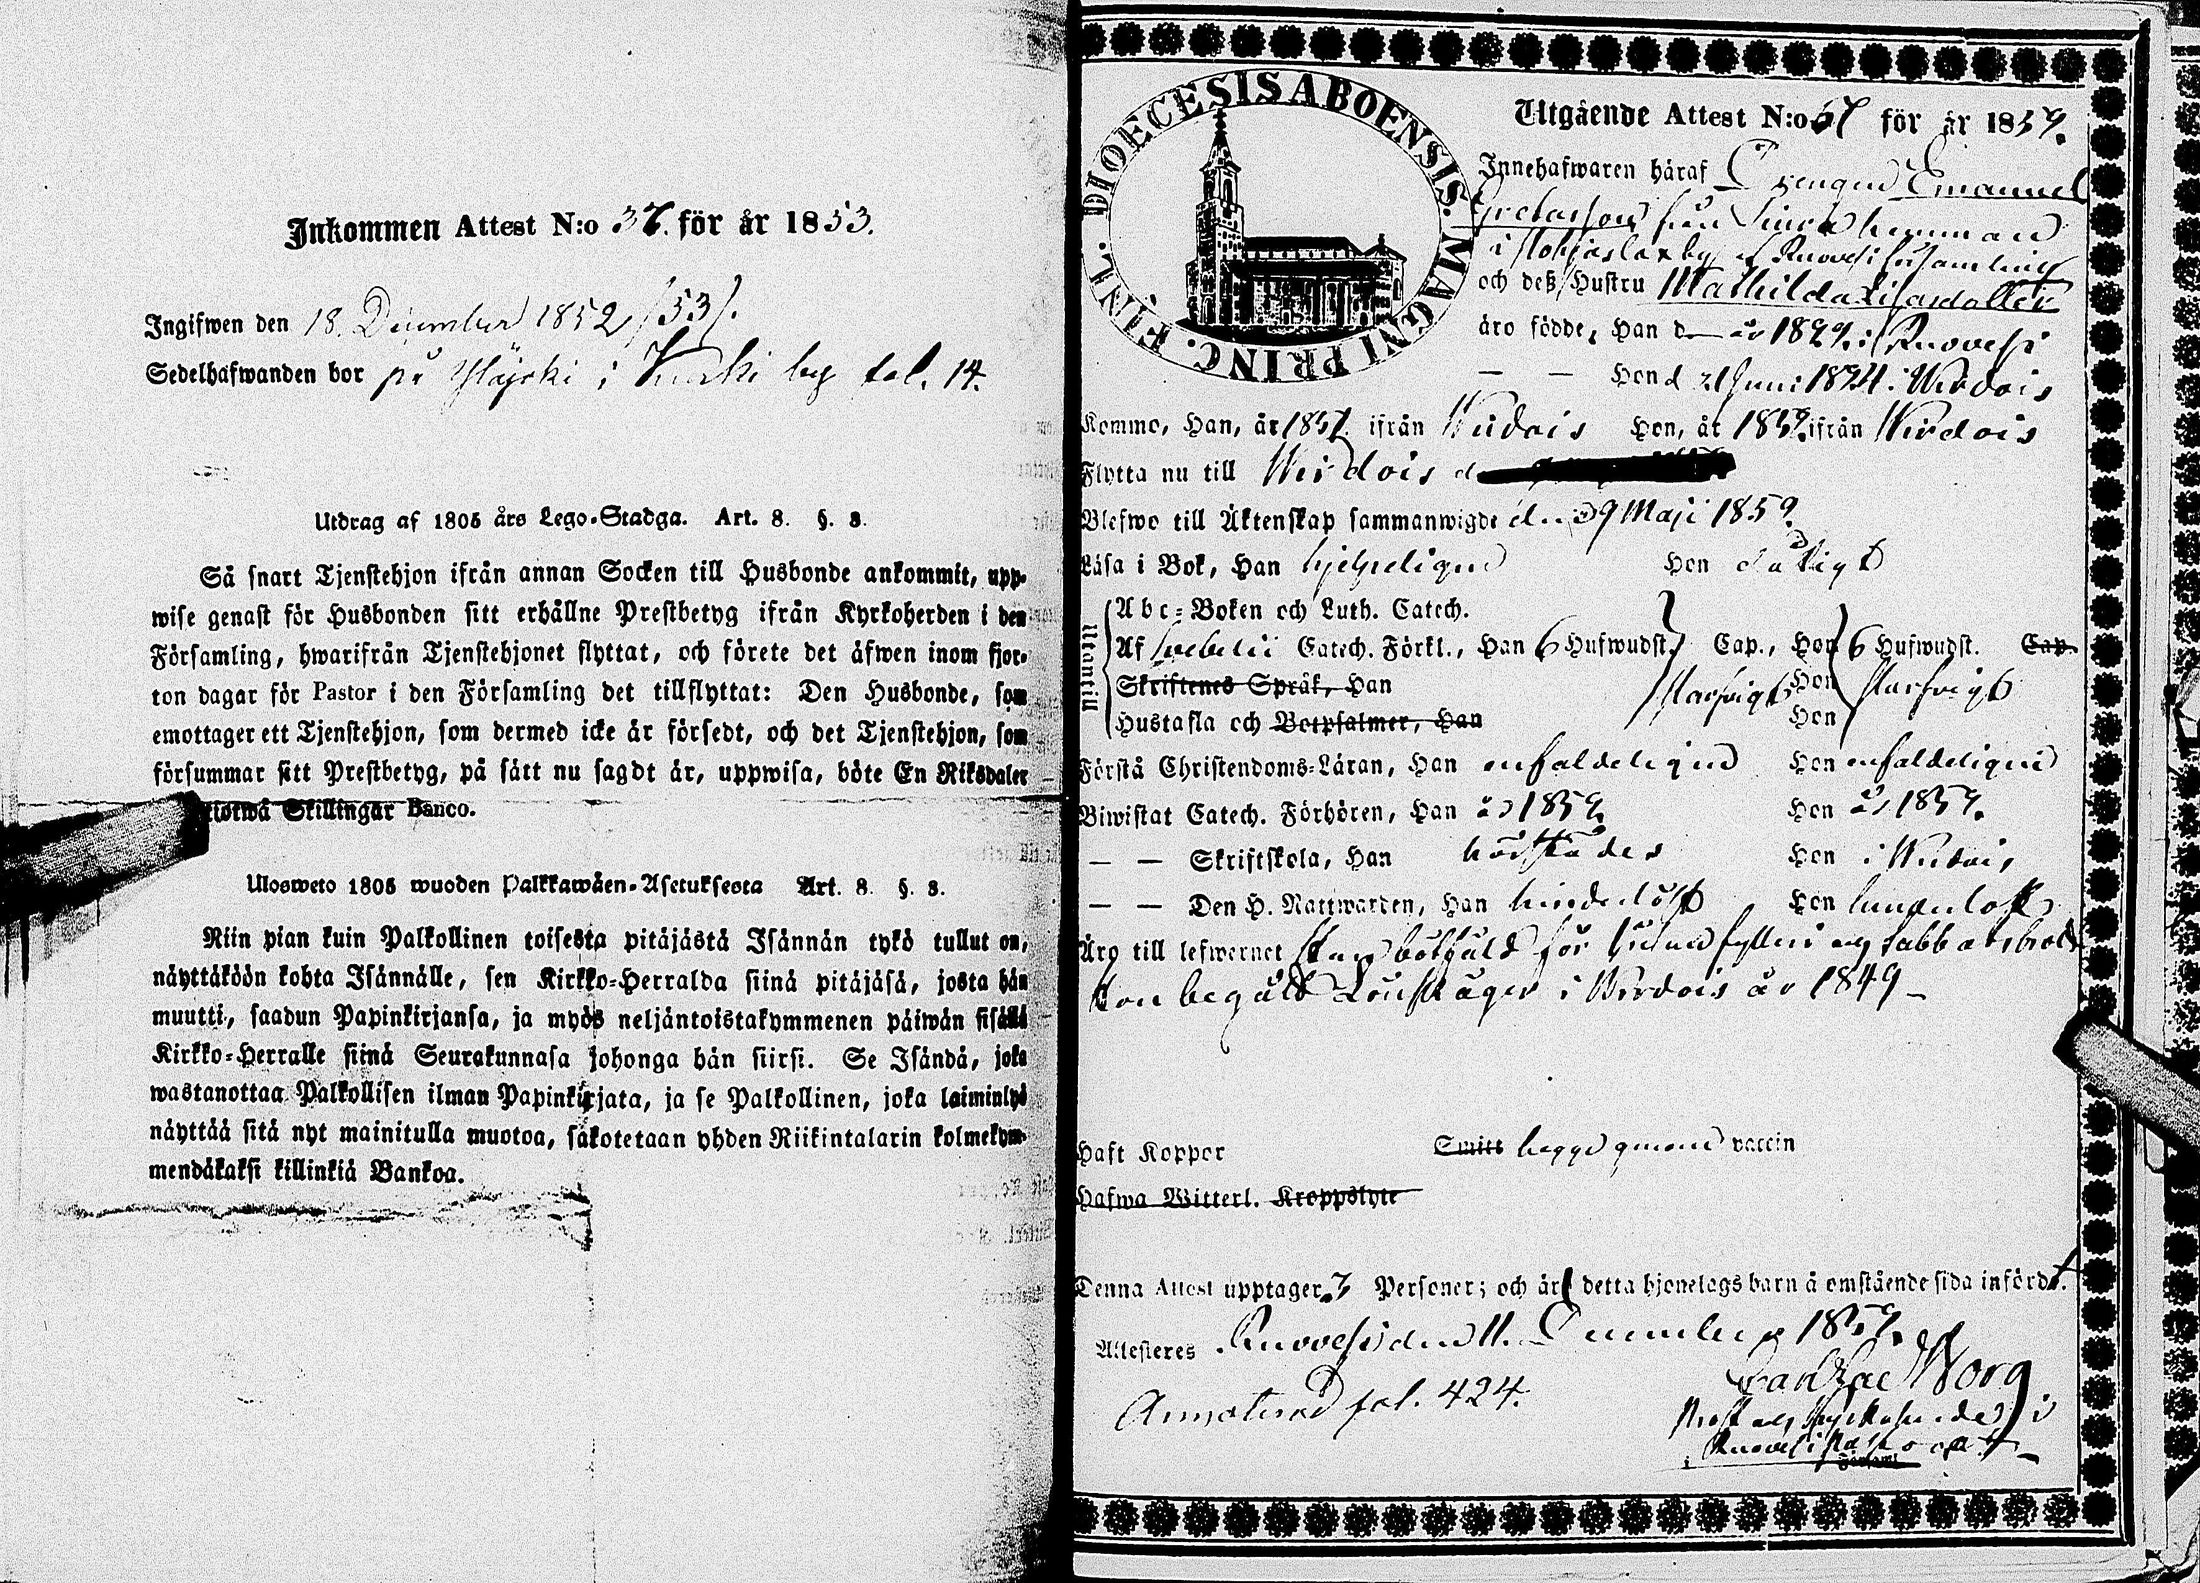 Inkommen Attest N:o 37. för år 1853.
Ingifwen den 18. December 1852 /53/.
Sedelhafwanden bor på Ylä i Kurki by fol. 14.
Utdrag af 1805 års Lego-Stadga. Art. 8. §. 8.
Så snart Tjenstehjon ifrån annan Socken till Husbonde ankommit, upp-
wise genast för Husbonden sitt erhållne Prestbetyg ifrån Kyrkoherden i den
Församling, hwarifrån Tjenstehjonet flyttat, och förete det äfwen inom fjor-
ton dagar för Pastor i den Församling det tillflyttat: Den Husbonde, som
emottager ett Tjenstehjon, som dermed icke är försedt, och det Tjenstehjon, som
försummar sitt Prestbetyg, på sätt nu sagdt är, uppwisa, böte En Riksdaler
Skillingar Banco.
Ulosweto 1805 wuoden Palkkawäen-Asetuksesta Art. 8. §. 8.
Niin pian kuin Palkollinen toisesta pitäjästä Isännän tykö tullut on,
näyttäköön kohta Isännälle, sen Kirkko-Herralda siinä pitäjäsä, josta hän
muutti, saadun Papinkirjansa, ja myös neljäntoistakymmenen päiwän sisällä
Kirkko-Herralle siinä Seurakunnasa johonga hän siirsi. Se Isändä, joka
wastanottaa Palkollisen ilman Papinkirjata, ja se Palkollinen, joka laiminlyö
näyttää sitä nyt mainitulla muotoa, sakotetaan yhden Riikintalarin kolmekym-
mendäkaksi killinkiä Bankoa.
DIOECESIS ABOENSIS. MAGNI PRINC. FINL.
Utgående Attest N:o 67 för år 1859.
Innehafwaren häraf Drengen Emanuel
från hemman
i by af Ruovesi församling
och deß Hustru Mathilda
äro födde, Han d — år 1829 i Ruovesi
— — Hon d 21 Juni 1824 i Wirdois
Komne, Han, år 1857 ifrån Wirdois Hon, år 1859 ifrån Wirdois
Flytta nu till Wirdois
Blefwo till Äktenskap sammanwigde d. 29 Maji 1859.
Läsa i Bok, Han hjelpeligen Hon dåligt
Utantill
Abc-Boken och Luth. Catech.
Af Svebelii Catech. Förkl., Han 6 Hufwudst. Cap., Hon 6 Hufwudst. Cap.
Skriftenes Språk, Han Hon
Hustafla och Botpsalmer, Han Hon
Förstå Christendoms-Läran, Han enfaldeligen Hon enfaldeligen
Biwistat Catech. Förhören, Han år 1859. Hon år 1859.
— — Skriftskola, Han härstädes Hon i Wirdois
— — Den H. Nattwarden, Han hinderlöst Hon hinderlöst
Äro till lefwernet Han botfäld för fylleri och sabbatsbrott
Hon begått Lönskaläger i Wirdois år 1849 —
Haft Koppor Smitt begge genom vaccin
Hafwa Witterl. Kroppslyte
Denna Attest upptager 3 Personer; och är 1 detta hjonelags barn å omstående sida infördt.
Attesteres Ruovesi den 11. December 1859.
Annoterad fol. 424.
Borg
Prost och Kyrkoherde i
Ruovesi Pastorat